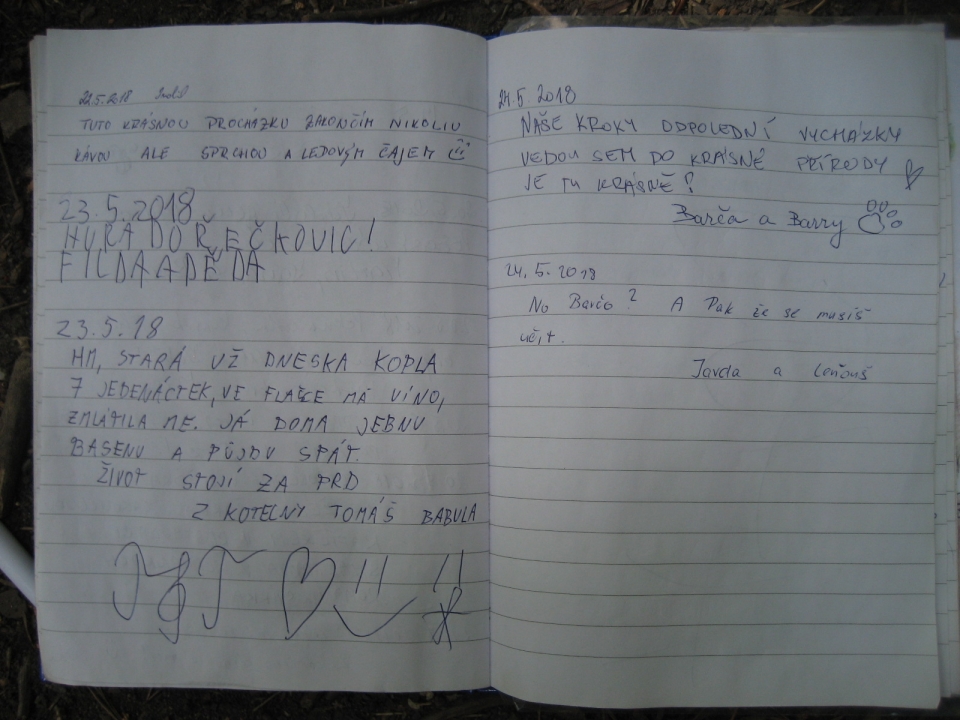 22.5.2018
TUTO KRÁSNOU PROCHÁZKU ZAKONČÍM NIKOLIV
KÁVOU ALE SPRCHOU A LEDOVÝM ČAJEM
23.5.2018
HURÁ DO ŘEČKOVIC!
FILDA A DĚDA
23.5.18
HM, STARÁ UŽ DNESKA KOPLA
7 JEDENÁCTEK, VE FLAŠCE MÁ VÍNO,
ZMLÁTILA ME. JÁ DOMA JEBNU
BASENU A PŮJDU SPÁT.
ŽIVOT STOJÍ ZA PRD
Z KOTELNY TOMÁŠ BABULA
J&J
24.5.2018
NAŠE KROKY ODPOLEDNÍ VYCHÁZKY
VEDOU SEM DO KRÁSNÉ PŘÍRODY
JE TU KRÁSNĚ!
Barča a Barry
24.5.2018
No Barčo? A Pak že se musíš
učit.
Javda a Leňouš